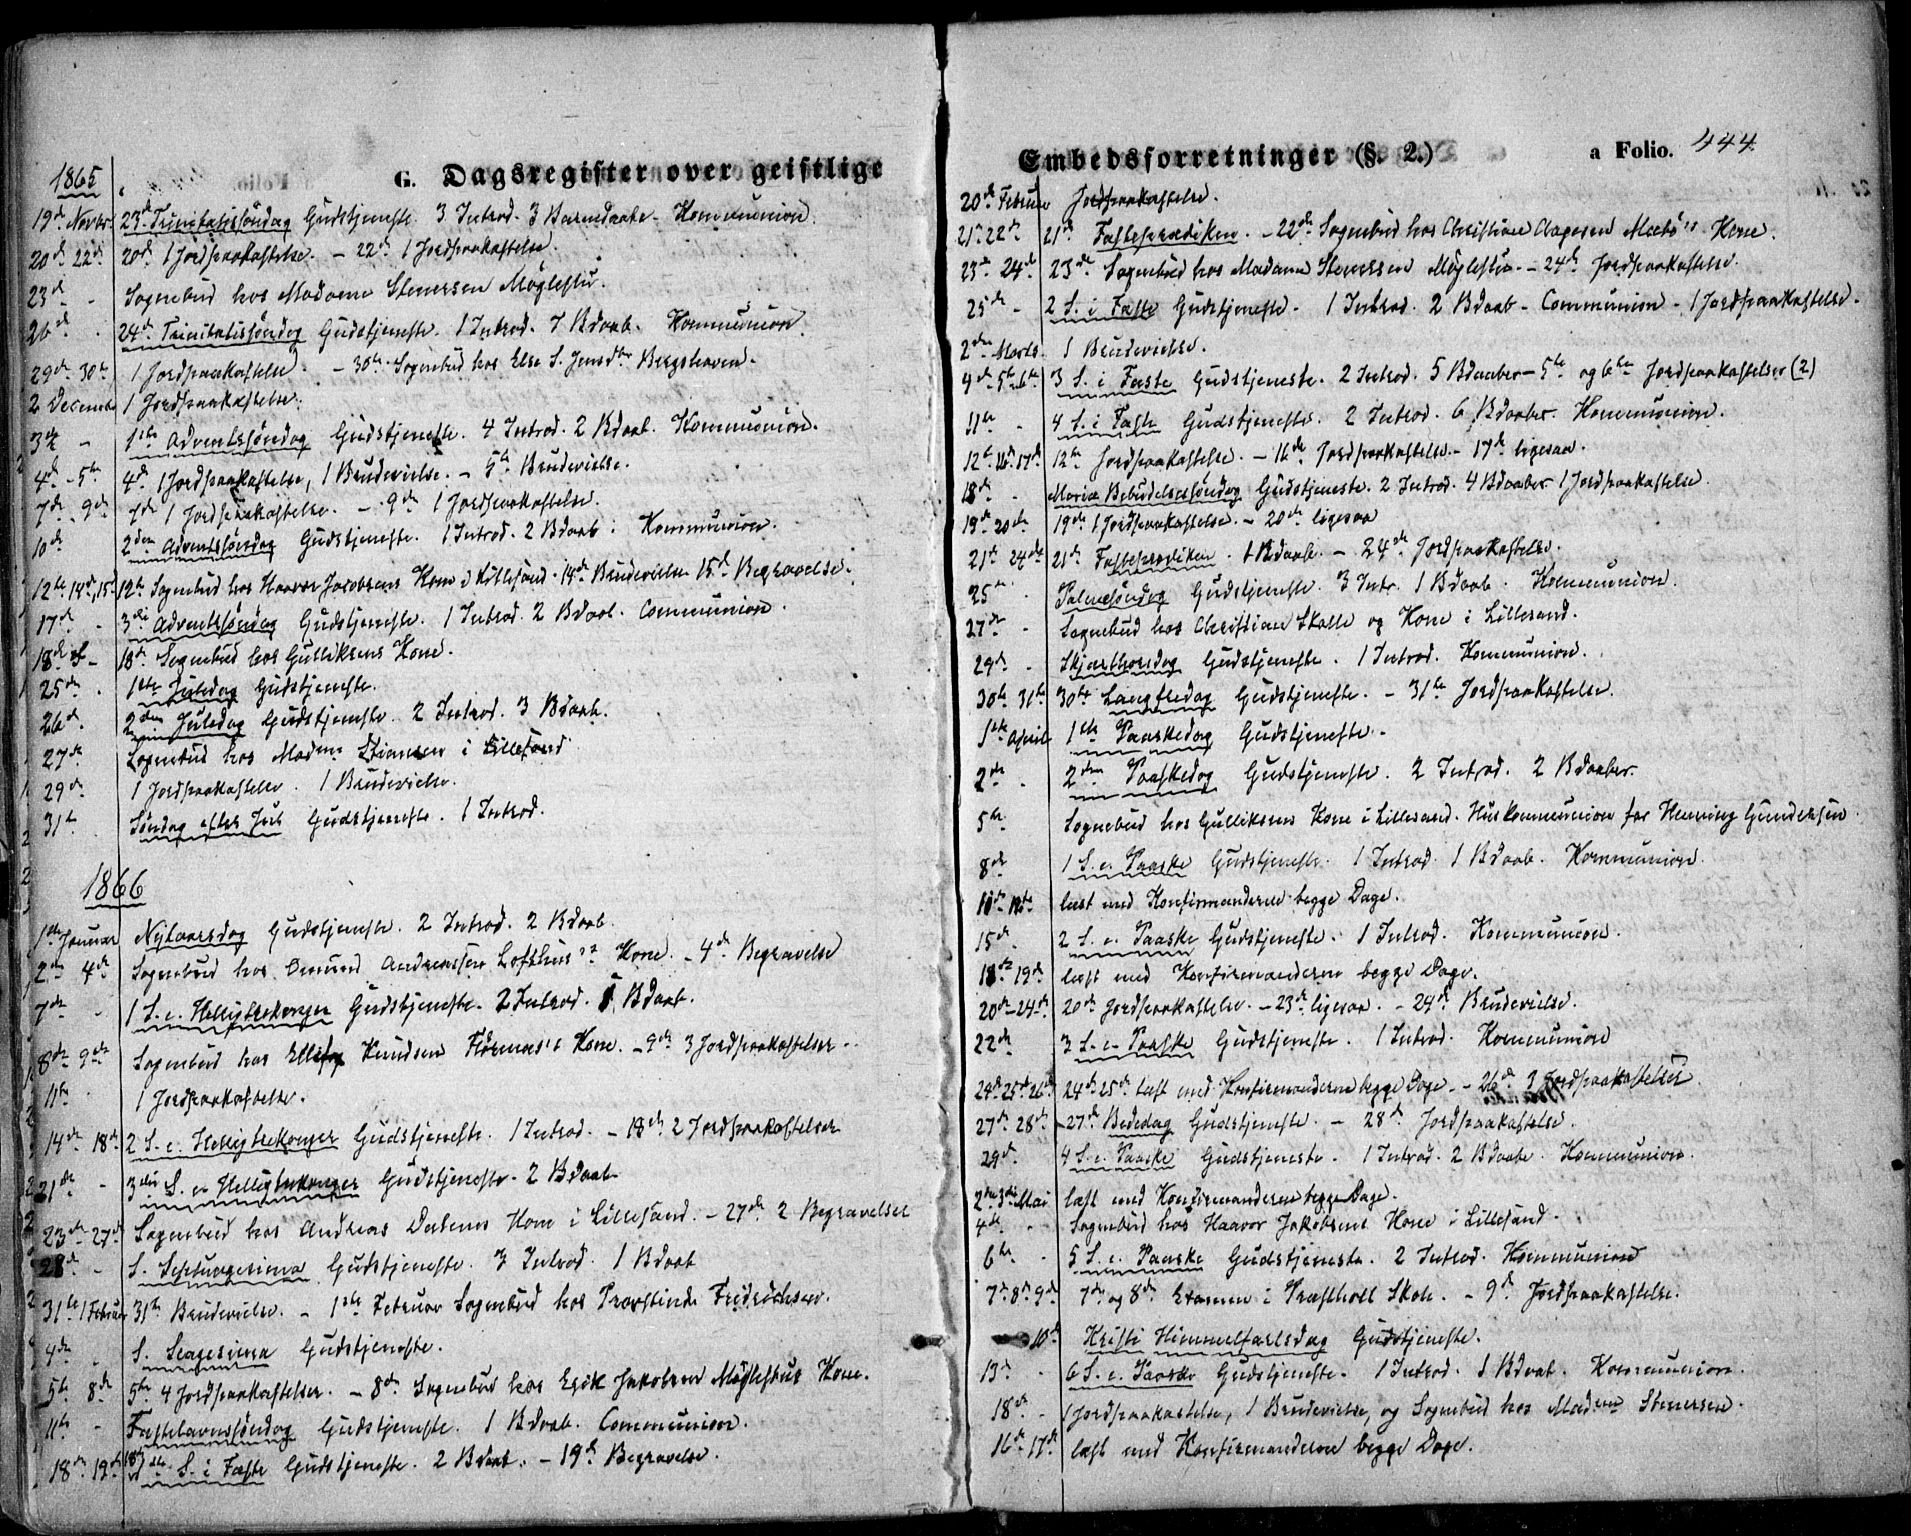 G. Dagsregister over geistlige
1865
19de Novbr. 23de Trinitatissöndag Gudstjeneste. 3 Introd. 3 Barnedaabe. Kommunion.
20de 22de 20de 1 Jordpaakastelse. - 22de 1 Jordpaakastelse.
23de - Sognebud hos Madame Stenersen Möglestu.
26de - 24de Trinitatissöndag Gudstjeneste. 1 Introd. 7 Bdaab. Kommunion.
29de 30te 1 Jordpaakastelse. - 30te Sognebud hos Else S. Jensdtr Bergshaven.
2 Decembr 1 Jordpaakastelse.
3die - 1ste Adventssöndag Gudstjeneste. 4 Introd. 2 Bdaab. Kommunion.
4de - 5te 4de 1 Jordpaakastelse, 1 Brudevielse. - 5te Brudevielse.
7de - 9de 7de 1 Jordpaakastelse. - 9de 1 Jordpaakastelse.
10de 2den Adventssöndag Gudstjeneste. 1 Introd. 2 Bdaab. Kommunion.
12te 14de, 15de 12te Sognebud hos Haavor Jacobsens Kone i Lillesand. 14de Brudevielse 15de Begravelse.
17de - 3die Adventssöndag Gudstjeneste. 1 Introd. 2 Bdaab. Communion.
18de - 18de Sognebud hos Gulliksens Kone.
25de - 1ste Juledag Gudstjeneste.
26de 2den Juledag Gudstjeneste. 2 Introd. 3 Bdaab.
27de Sognebud hos Madme Stiansen i Lillesand
29de 1 Jordpaakastelse. 1 Brudevielse.
31te Söndag efter Jul Gudstjeneste. 1 Introd.
1866
1ste Januar Nytaarsdag Gudstjeneste. 2 Introd. 2 Bdaab.
2den 4de Sognebud hos Omund Andreassen Lofthus's Kone. - 4de Begravelse
7de - 1 S. e. Helligtrekonger Gudstjeneste. 2 Introd. 1 Bdaab.
8de 9de Sognebud hos Knudsen Kone. - 9de 3 Jordpaakastelser.
11te 1 Jordpaakastelse.
14de 18de 2 S. e. Helligtrekonger Gudstjeneste. 1 Introd. - 18de 2 Jordpaakastelser
21de - 3die S. e. Helligtrekonger Gudstjeneste. 2 Bdaab
23de - 27de Sognebud hos Andreas Kone i Lillesand. - 27de 2 Begravelser
28de - S. Septuagesima Gudstjeneste. 3 Introd. 1 Bdaab
31te 1 Februar 31te Brudevielse. - 1ste Februar Sognebud hos Provstinde Fredrichsen.
4de - S. Sexagesima Gudstjeneste.
5te 8de 5te 4 Jordpaakastelser. - 8de Sognebud hos Erik Jakobsen Möglestus Kone.
11te - Fastelavnssöndag Gudstjeneste. 1 Bdaab. Communion.
18de 19de 1ste S. i Faste Gudstjeneste. 2 Bdaab. - 19de Begravelse.
Embedsforretninger (§. 2.) a Folio. 444.
20de Februar Jordpaakastelse.
21de 22de 21de Fasteprædiken. - 22de Sognebud hos Christian Aagesen Kone.
23de 24de 23de Sognebud hos Madame Stenersen Möglestu. - 24de Jordpaakastelse.
25de - 2 S. i Faste Gudstjeneste. 1 Introd. 2 Bdaab - Communion - 1 Jordpaakastelse.
2den Marts. 1 Brudevielse.
4de 5te 6te 3 S. i Faste Gudstjeneste. 2 Introd. 5 Bdaaber - 5te og 6te Jordpaakastelser (2)
11te - 4 S. i Faste Gudstjeneste. 2 Introd. 6 Bdaaber. Kommunion.
12te 16de 17de 12te Jordpaakastelse. - 16de Jordpaakastelse. - 17de ligesaa.
18de - Mariæ Bebudelsessöndag Gudstjeneste. 2 Introd. 4 Bdaaber 1 Jordpaakastelse
19de 20de 19de 1 Jordpaakastelse. - 20de ligesaa
21de 24de 21de Fasteprædiken. 1 Bdaab. - 24de Jordpaakastelse.
25de Palmesöndag Gudstjeneste. 3 Intr. 1 Bdaab. Kommunion.
27de - Sognebud hos Christian Skalle og Kone i Lillesand.
29de - Skjærthorsdag Gudstjeneste. 1 Introd. Kommunion.
30te 31te 30te Langfredag Gudstjeneste. - 31te Jordpaakastelse.
1ste April 1ste Paaskedag Gudstjeneste.
2den - 2den Paaskedag Gudstjeneste. 2 Introd. 2 Bdaaber.
5te Sognebud hos Gulliksens Kone i Lillesand. Huskommunion for Henning Gundersen.
8de 1 S. e. Paaske Gudstjeneste. 1 Introd. 1 Bdaab. Kommunion.
læst med Konfirmanderne begge Dage.
15de - 2 S. e. Paaske Gudstjeneste. 1 Introd. Kommunion.
18de 19de læst med Konfirmanderne begge Dage.
20de - 24de 20de Jordpaakastelse. - 23de ligesaa. - 24de Brudevielse.
22de 3 S. e. Paaske Gudstjeneste. 1 Introd. Kommunion
24de 25de 26de 24de 25de læst med Konfirmanderne begge Dage - 26de Jordpaakastelser
27de 28de 27de Bededag Gudstjeneste. - 28de Jordpaakastelse.
29de 4 S. e. Paaske Gudstjeneste. 1 Introd. 2 Bdaabe. Kommunion.
2den 3die Mai læst med Konfirmanderne begge Dage.
4de Sognebud hos Haavor Jakobsens Kone i Lillesand.
6te - 5 S. e. Paaske Gudstjeneste. 2 Introd. Kommunion
7de 8de 9de 7de og 8de Examen i Skole. - 9de Jordpaakastelse.
10de Kristi Himmelfartsdag Gudstjeneste.
13de - 6 S. e. Paaske Gudstjeneste. 1 Introd. 1 Bdaab. Kommunion.
18de - 1 Jordpaakastelse, 1 Brudevielse, og Sognebud hos Madme Stenersen.
16de 17de læst med Konfirmanderne begge Dage.